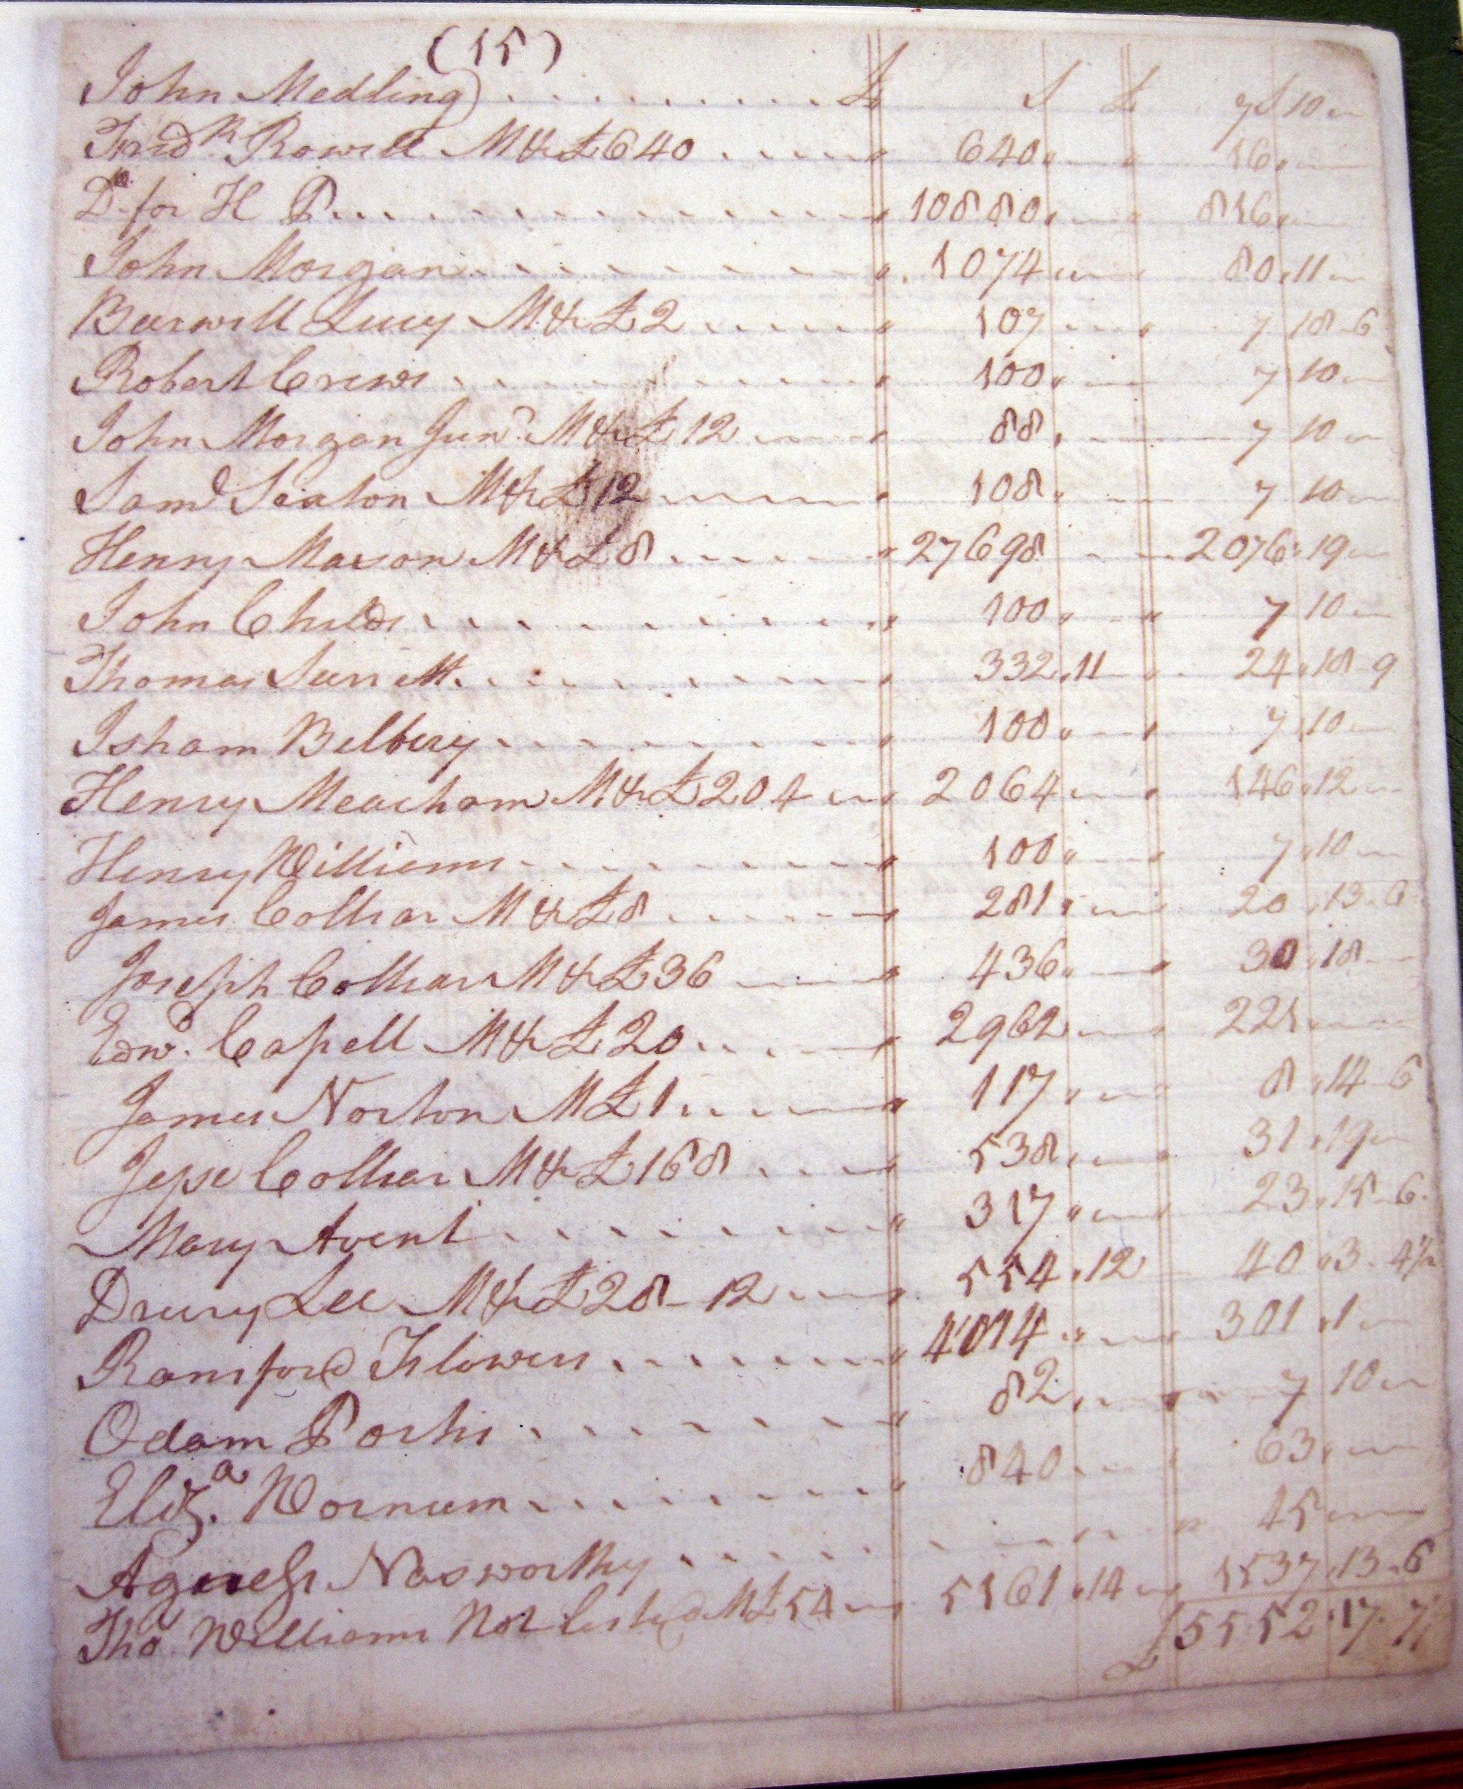 (15)
John Medling £ S £ 7 S 10
Fred.k Rowell M &c £640 640 16
Do. for H P 10880 816
John Morgan 1074 80 11
Burwell Lucy M &c £2 107 7 18 6
Robert Crews 100 7 10
John Morgan Junr. M &c £12 88 7 10
Saml Seaton M &c £12 108 7 10
Henry Mason M &c £8 27698 2076 19
John Childs 100 7 10
Thomas Surrett 332 11 24 18 9
Isham Belbery 100 7 10
Henry Meacham M &c £204 2064 146 12
Henry Williams 100 7 10
James Colliar M &c £8 281 20 13 6
Joseph Colliar M &c £36 436 30 18
Edwd. Capell M &c £20 2962 221
James Norton M £1 117 8 14 6
Jesse Colliar M &c £168 538 31 19
Mary Avent 317 23 15 6
Drury Lee M &c £28-12 554 12 40 3 4½
Ransford Flowers 4014 301 1
Odam Portis 82 7 10
Eliza. Wornum 840 63
Agness Nasworthy 45
Tho. Williams Not listed M £54 5161 14 1537 13 6
£ 5552 17 7